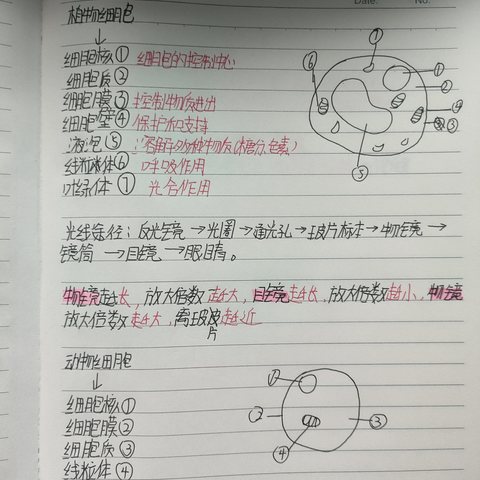 Date:
No.
植物细胞
↓
细胞核① 细胞的控制中心
细胞质②
细胞膜③ 控制物质进出
细胞壁④ 保护和支持
液泡⑤ :溶解多种物质(糖分,色素)
线粒体⑥ 呼吸作用
叶绿体⑦ 光合作用
⑦
⑥
①
②
④
③
⑤
光线途径:反光镜→光圈→通光孔→玻片标本→物镜→
镜筒→目镜→眼睛。
物镜越长,放大倍数越大,目镜越长,放大倍数越小,物镜
放大倍数越大,离玻片越近
动物细胞
↓
细胞核①
细胞膜②
细胞质③
线粒体④
①
②
③
④